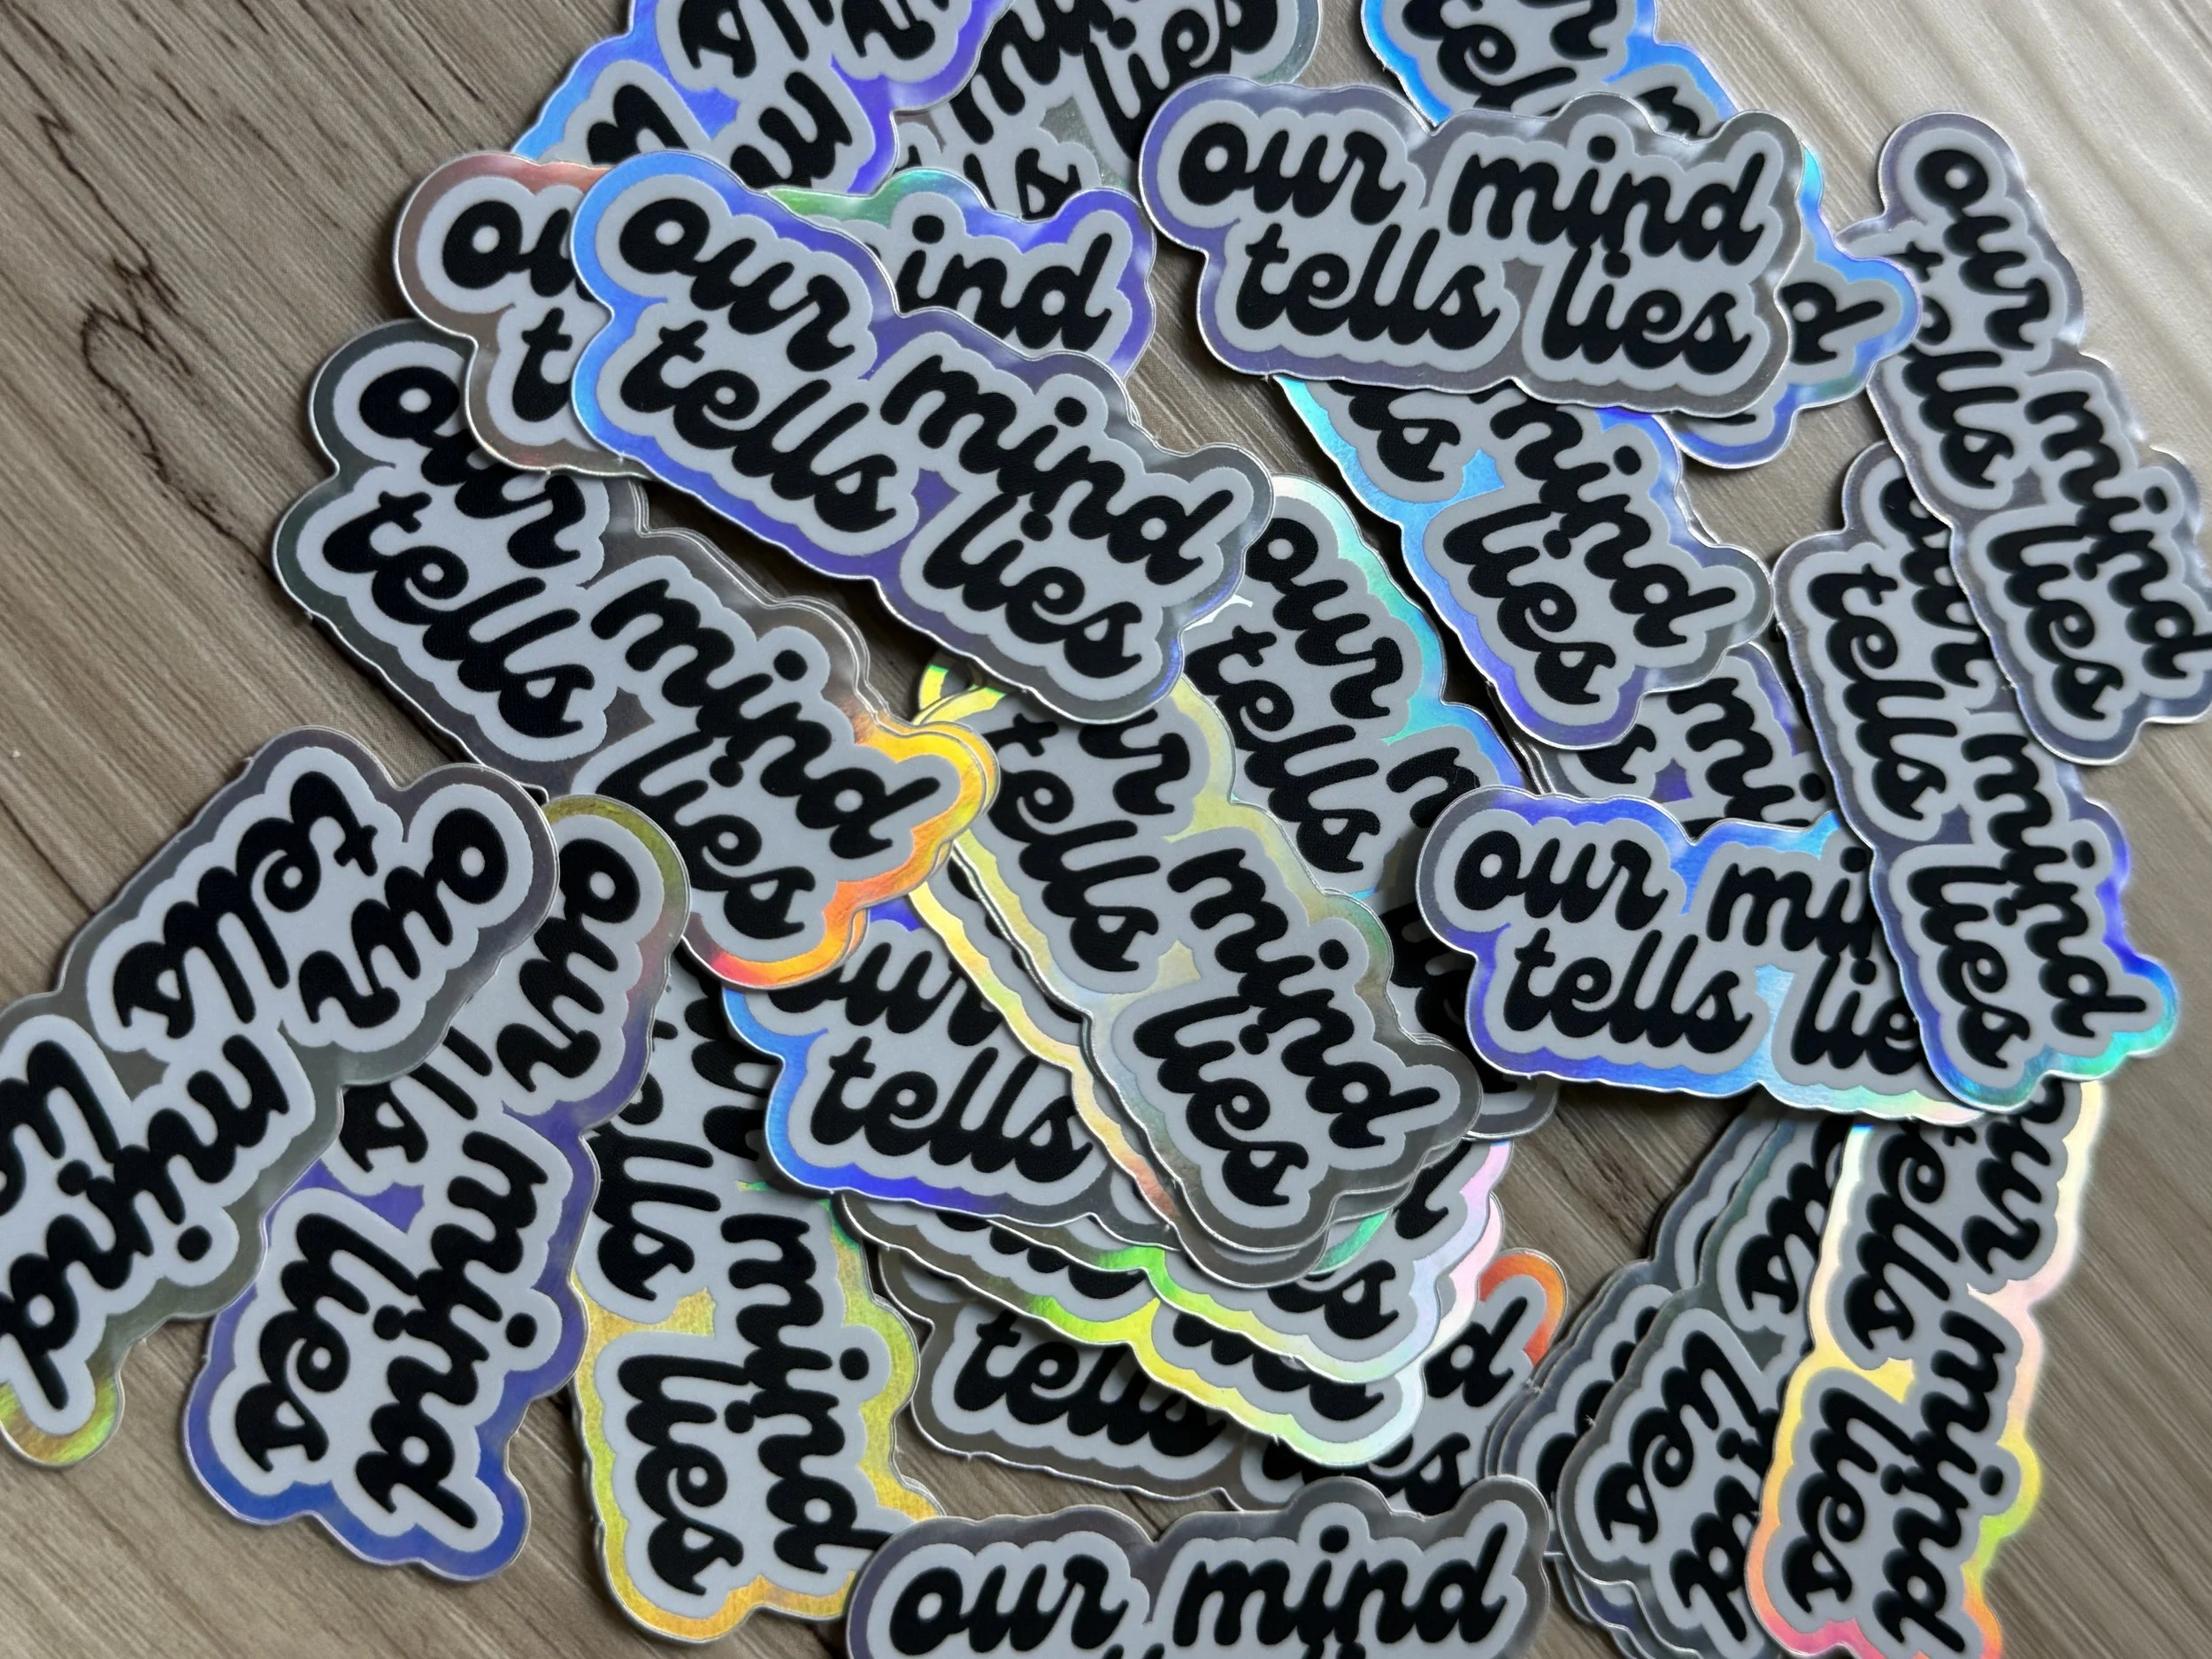 lies
our mind
tells lies
our mind
tells lies
our mind
tells lies
our mind
tells lies
mind
lies
our
tells
our mind
tells lies
our
tells
mind
tells lies
our mind
tells
our mind
lies
mind
lies
tells
tells
lies
mind
lies
our mind